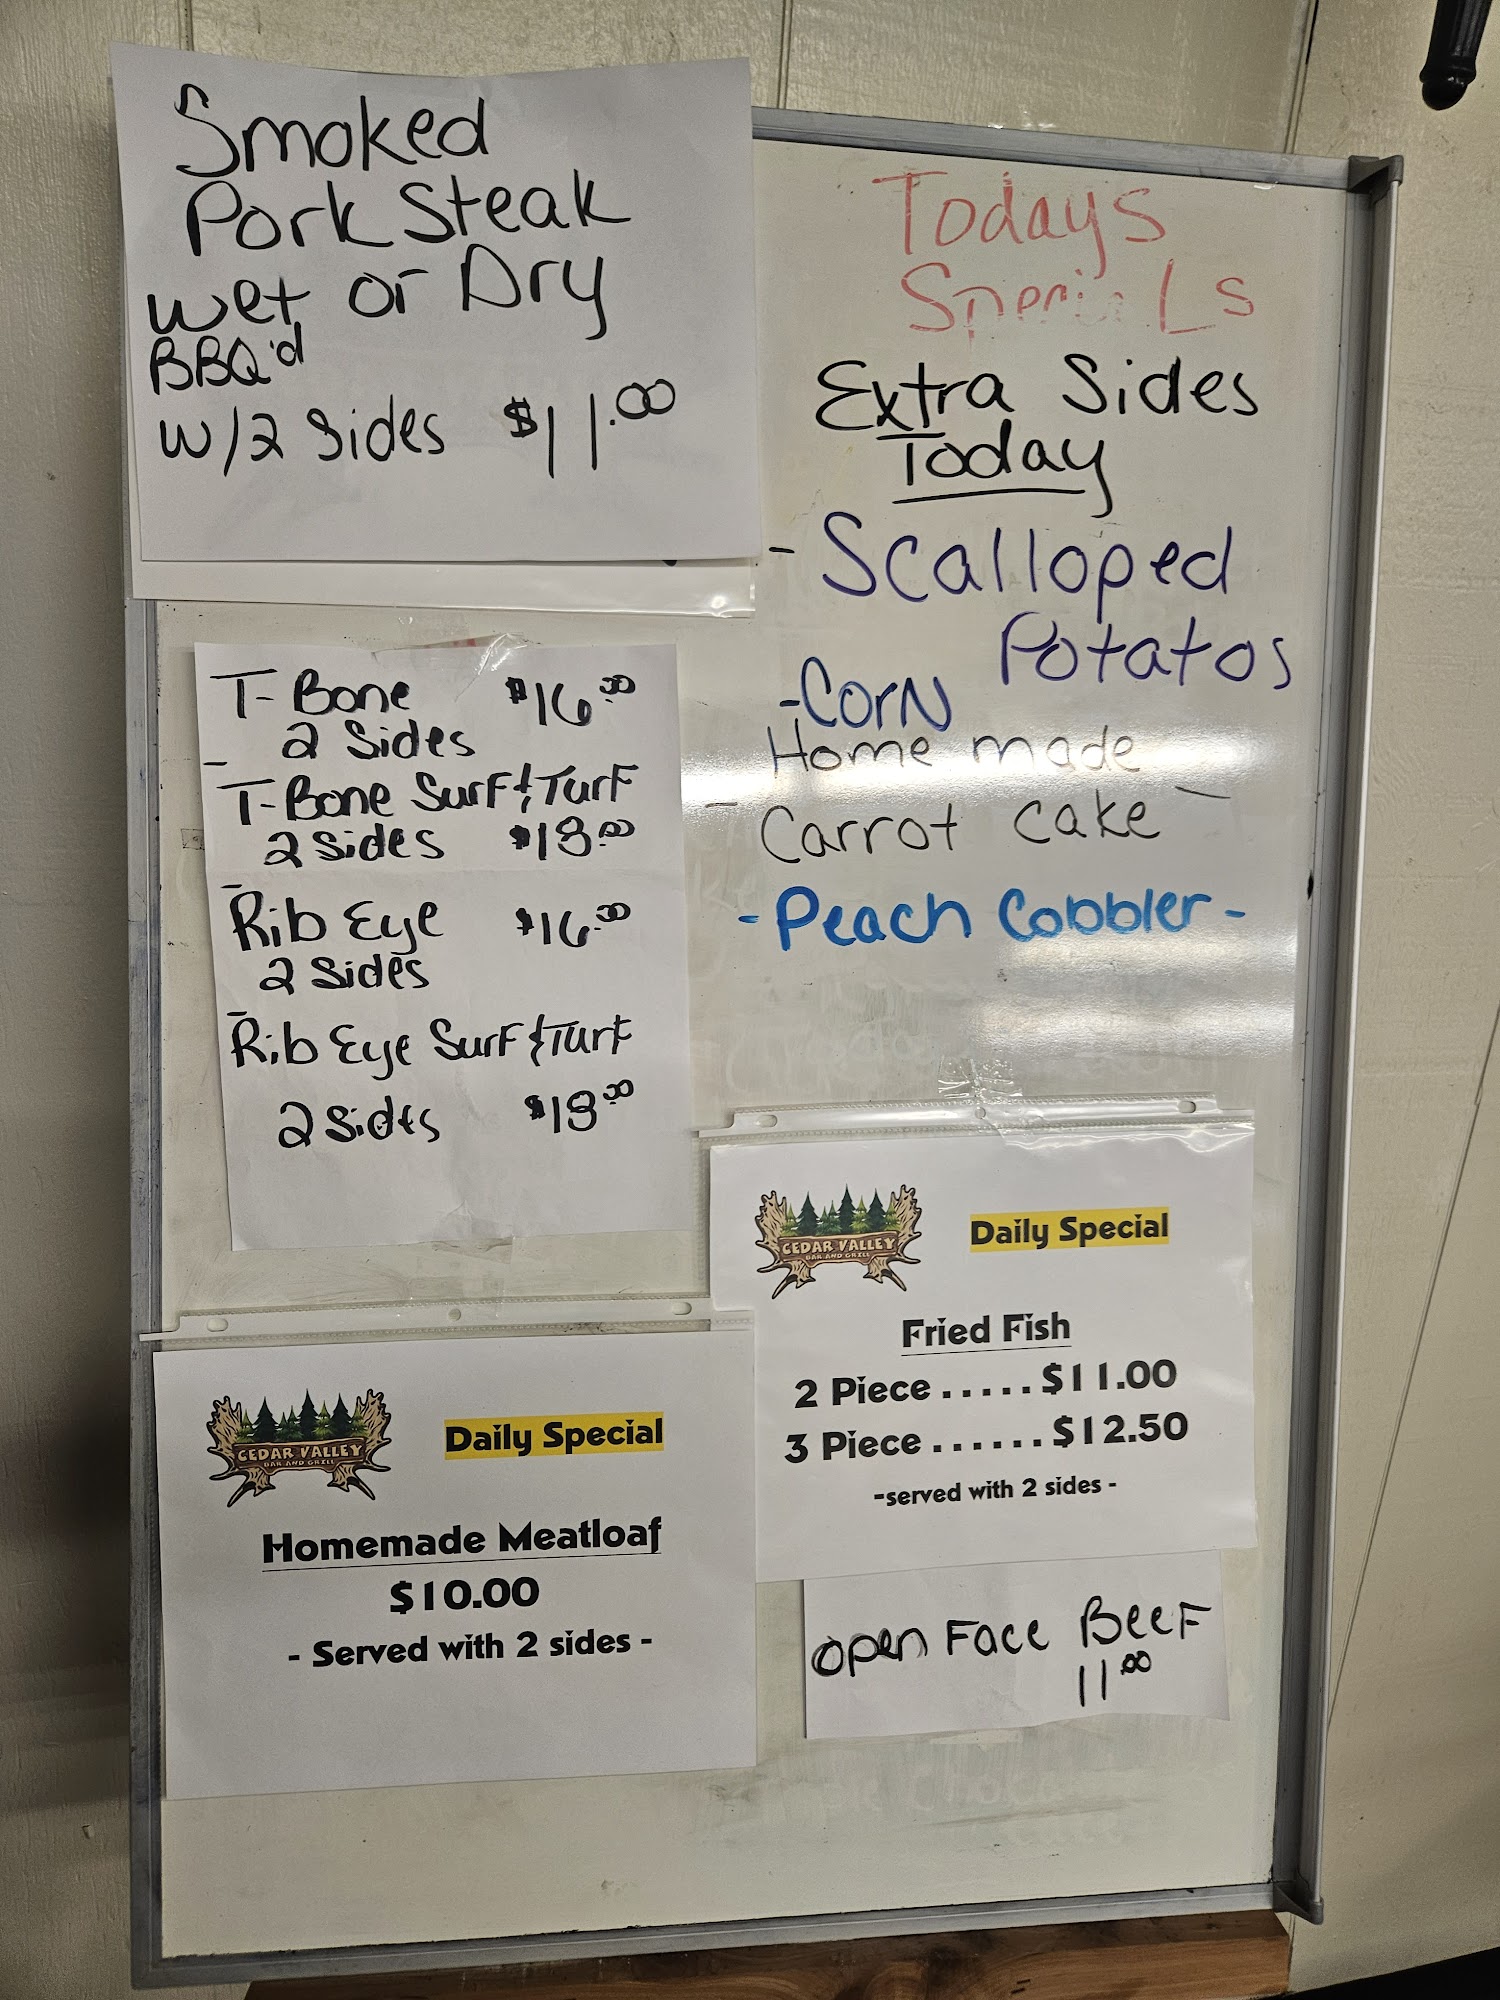 Smoked
Pork Steak
Wet or Dry
BBQ'd
W/2 Sides $11.00
Todays
Specials
Extra Sides
Today
- Scalloped
Potatos
- Corn
Home made
- Carrot cake -
- Peach Cobbler -
T-Bone $16.00
2 Sides
- T-Bone Surf & Turf
2 Sides $18.00
- Rib Eye $16.00
2 Sides
- Rib Eye Surf & Turf
2 Sides $18.00
CEDAR VALLEY
BAR AND GRILL
Daily Special
Fried Fish
2 Piece ..... $11.00
3 Piece ...... $12.50
-served with 2 sides -
CEDAR VALLEY
BAR AND GRILL
Daily Special
Homemade Meatloaf
$10.00
- Served with 2 sides -
open Face Beef
11.00